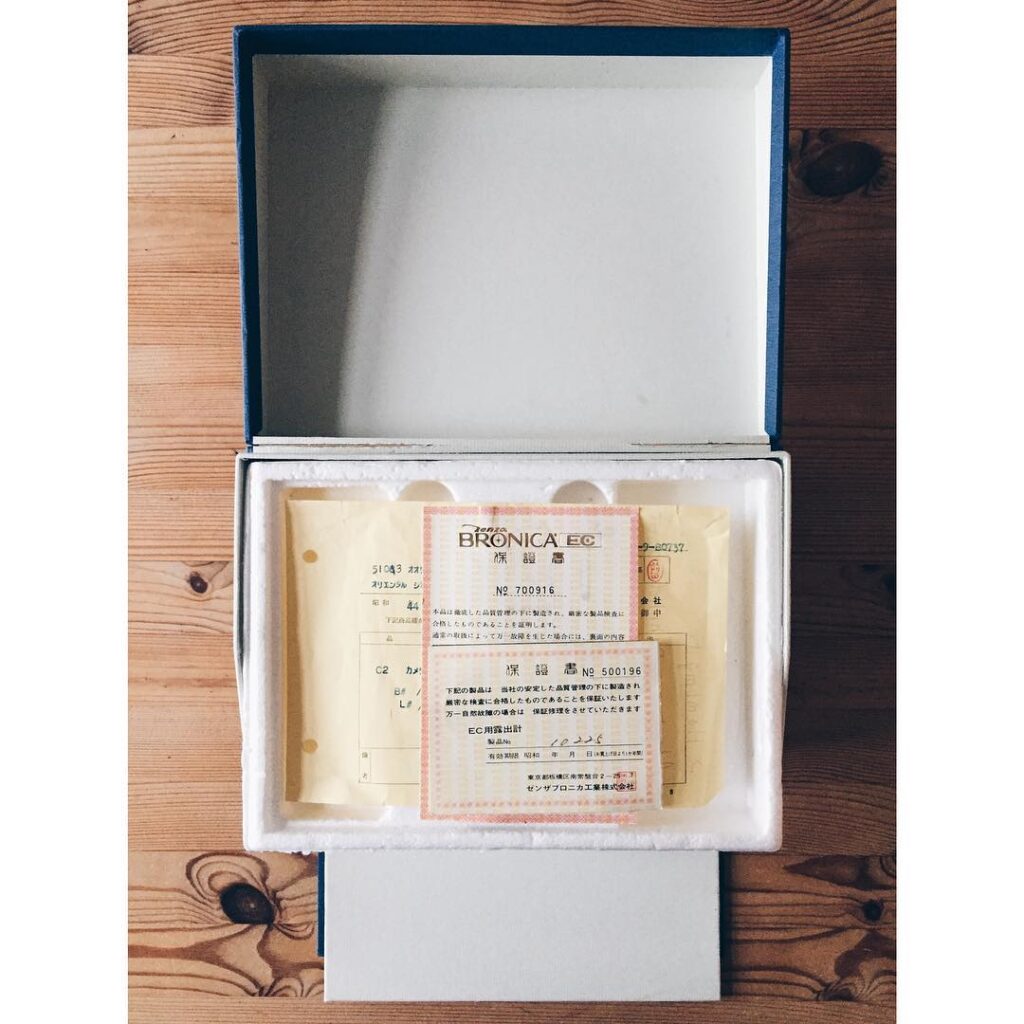 zenza
BRONICA EC
保證書
№ 700916
本品は徹底した品質管理の下に製造され、厳密な製品検査に
合格したものであることを証明します。
通常の取扱によって万一故障を生じた場合には、裏面の内容
保證書 № 500196
下記の製品は 当社の安定した品質管理の下に製造され
厳密な検査に合格したものであることを保証いたします
万一自然故障の場合は 保証修理をさせていただきます
EC用露出計
製品No 10225
有効期限 昭和 年 月 日
東京都板橋区南常盤台2-
ゼンザブロニカ工業株式会社
オリエンタル
昭和 44
品
C2 カメ
B#
L#
備
考
会社
御中